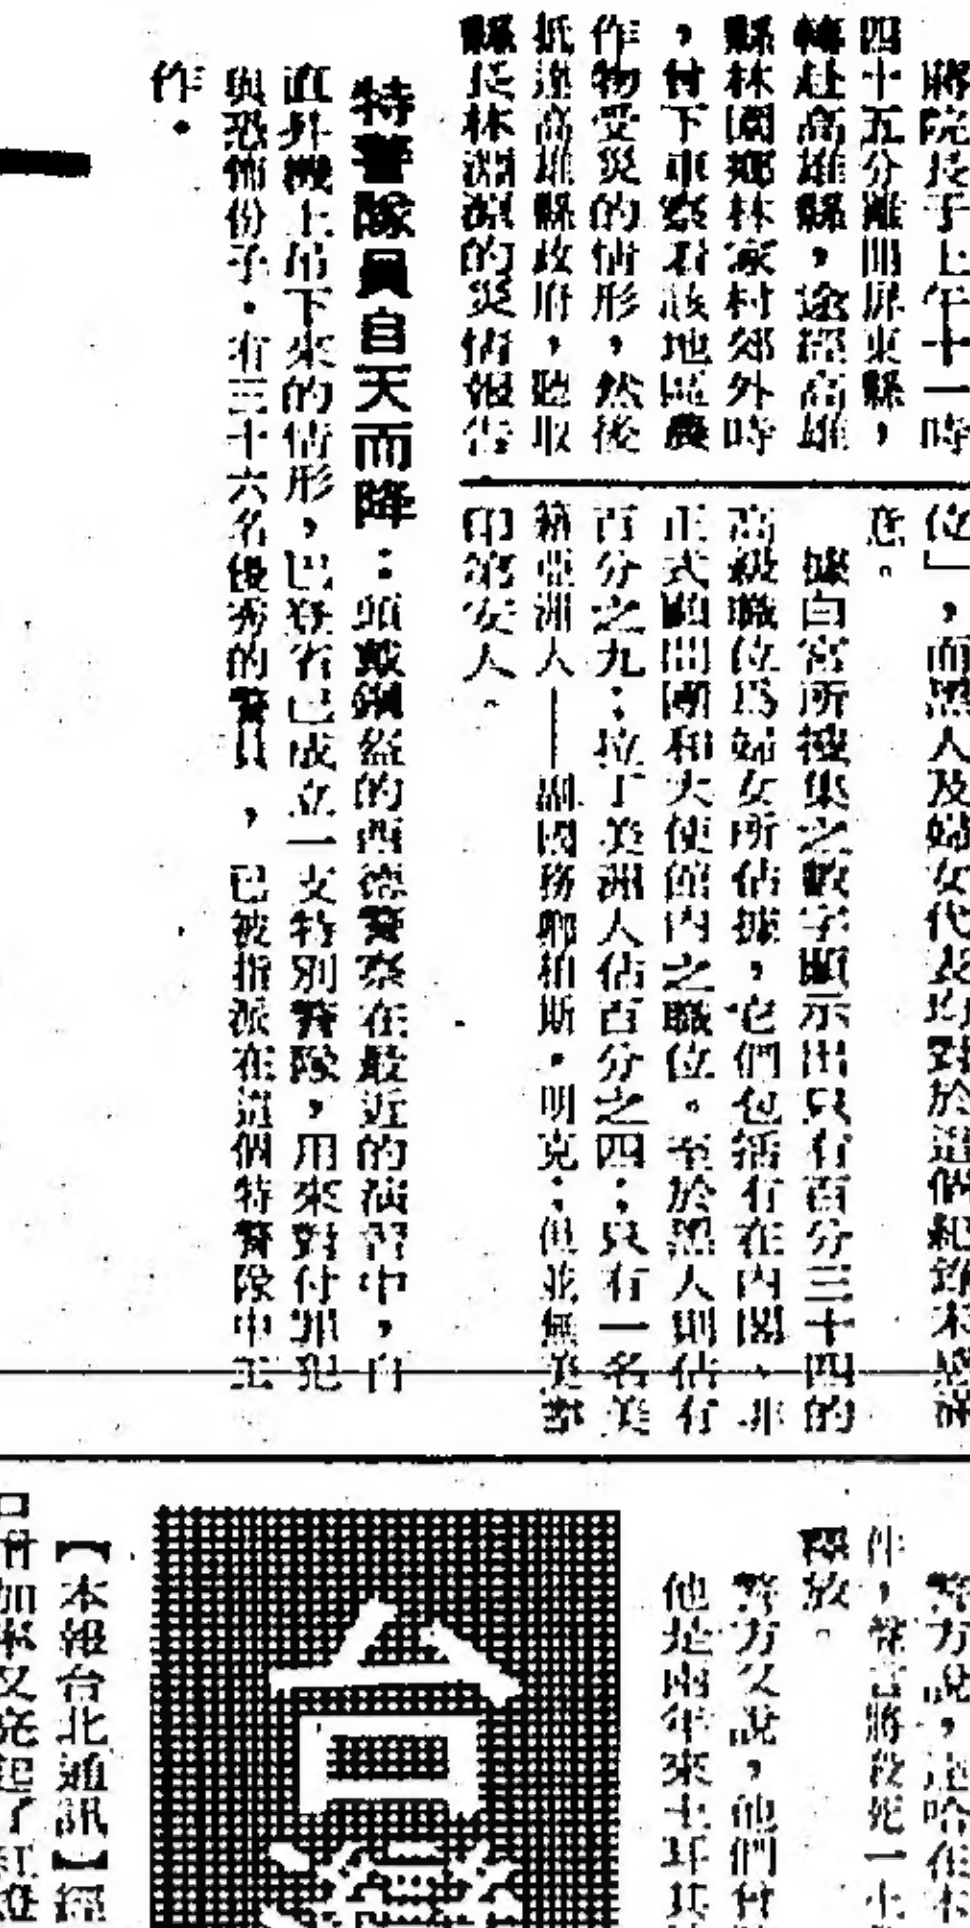 蔣院長于上午十一時
四十五分離開屏東縣，
轉赴高雄縣，途經高雄
縣林園鄉林家村郊外時
，曾下車察看該地區農
作物受災的情形，然後
抵達高雄縣政府，聽取
縣長林淵源的災情報告．
位」，而黑人及婦女代表均對於這個紀錄未感滿
意。
據白宮所搜集之數字顯示出只有百分三十四的
高級職位爲婦女所佔據，它們包括有在內閣、非
正式顧問團和大使館內之職位。至於黑人則佔有
百分之九；拉丁美洲人佔百分之四；只有一名美
籍亞洲人——副國務卿柏斯．明克；但並無美裔
印第安人。
特警隊員自天而降：頭戴鋼盔的西德警察在最近的演習中，自
直昇機上吊下來的情形，巴登省已成立一支特別警隊，用來對付罪犯
與恐怖份子．有三十六名優秀的警員，已被指派在這個特警隊中工
作．
警方說，
件，聲言將殺死一
釋放。
警方又說，他們曾
他是兩年來土耳其
【本報台北通訊】經
加
又亮起了紅燈